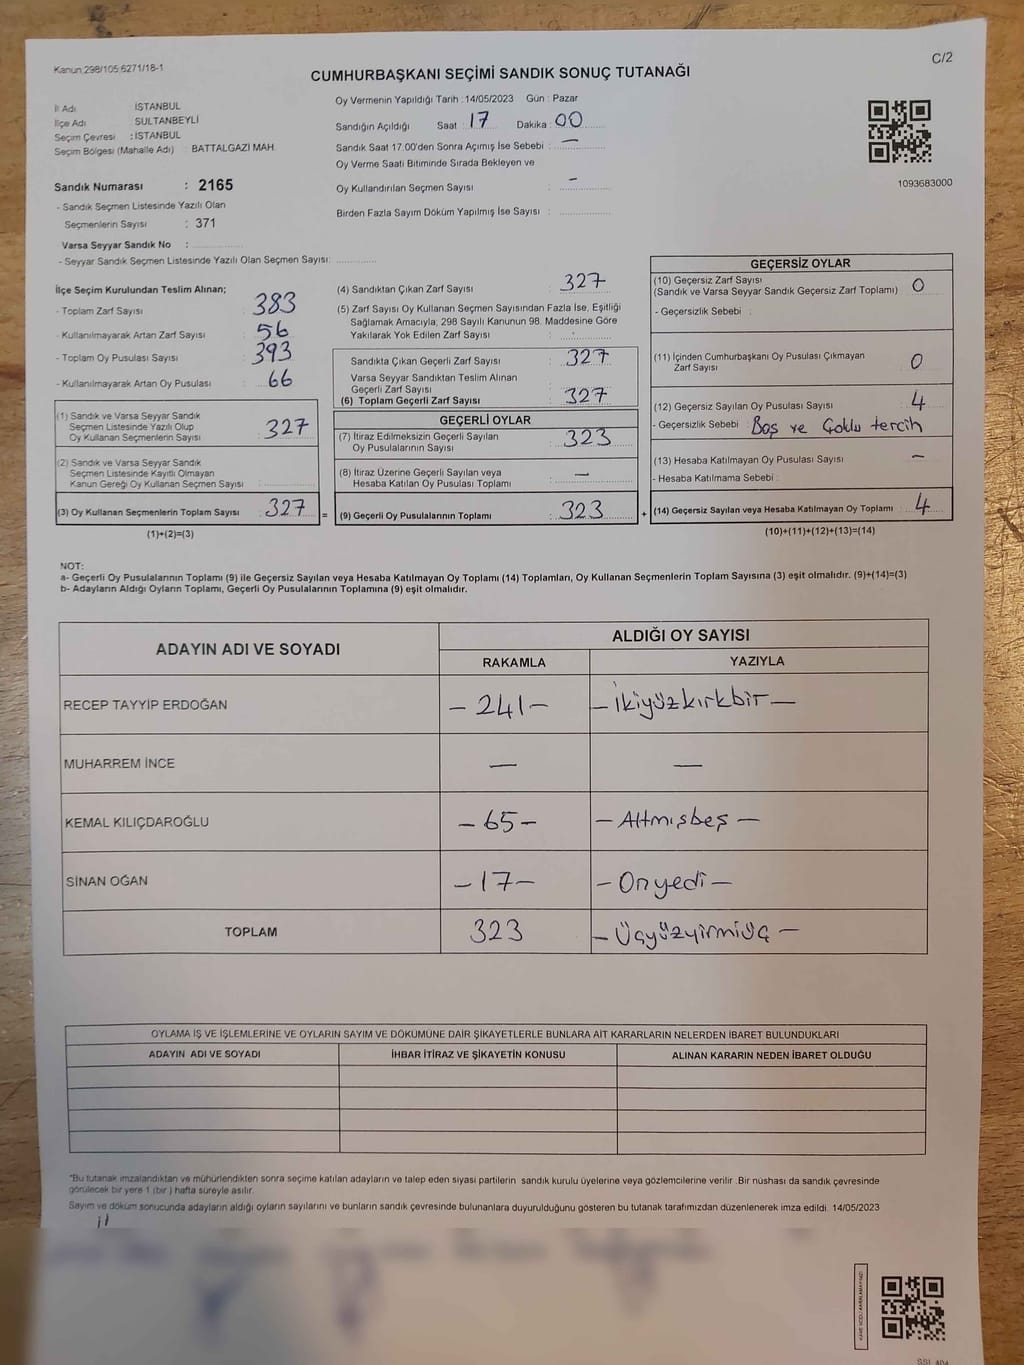 Kanun:298/105;6271/18-1
C/2
CUMHURBAŞKANI SEÇİMİ SANDIK SONUÇ TUTANAĞI
İl Adı : İSTANBUL
İlçe Adı : SULTANBEYLİ
Seçim Çevresi : İSTANBUL
Seçim Bölgesi (Mahalle Adı) : BATTALGAZİ MAH.
Sandık Numarası : 2165
- Sandık Seçmen Listesinde Yazılı Olan
Seçmenlerin Sayısı : 371
Varsa Seyyar Sandık No :
- Seyyar Sandık Seçmen Listesinde Yazılı Olan Seçmen Sayısı:
Oy Vermenin Yapıldığı Tarih : 14/05/2023 Gün : Pazar
Sandığın Açıldığı Saat : 17 Dakika : 00
Sandık Saat 17:00'den Sonra Açımış İse Sebebi : —
Oy Verme Saati Bitiminde Sırada Bekleyen ve
Oy Kullandırılan Seçmen Sayısı : -
Birden Fazla Sayım Döküm Yapılmış İse Sayısı :
1093683000
İlçe Seçim Kurulundan Teslim Alınan;
- Toplam Zarf Sayısı : 383
- Kullanılmayarak Artan Zarf Sayısı : 56
- Toplam Oy Pusulası Sayısı : 393
- Kullanılmayarak Artan Oy Pusulası : 66
(1) Sandık ve Varsa Seyyar Sandık
Seçmen Listesinde Yazılı Olup
Oy Kullanan Seçmenlerin Sayısı : 327
(2) Sandık ve Varsa Seyyar Sandık
Seçmen Listesinde Kayıtlı Olmayan
Kanun Gereği Oy Kullanan Seçmen Sayısı :
(3) Oy Kullanan Seçmenlerin Toplam Sayısı : 327 =
(1)+(2)=(3)
(4) Sandıktan Çıkan Zarf Sayısı : 327
(5) Zarf Sayısı Oy Kullanan Seçmen Sayısından Fazla İse, Eşitliği
Sağlamak Amacıyla; 298 Sayılı Kanunun 98. Maddesine Göre
Yakılarak Yok Edilen Zarf Sayısı :
Sandıkta Çıkan Geçerli Zarf Sayısı : 327
Varsa Seyyar Sandıktan Teslim Alınan
Geçerli Zarf Sayısı :
(6) Toplam Geçerli Zarf Sayısı : 327
GEÇERLİ OYLAR
(7) İtiraz Edilmeksizin Geçerli Sayılan
Oy Pusulalarının Sayısı : 323
(8) İtiraz Üzerine Geçerli Sayılan veya
Hesaba Katılan Oy Pusulası Toplamı : —
(9) Geçerli Oy Pusulalarının Toplamı : 323 +
GEÇERSİZ OYLAR
(10) Geçersiz Zarf Sayısı
(Sandık ve Varsa Seyyar Sandık Geçersiz Zarf Toplamı) : 0
- Geçersizlik Sebebi :
(11) İçinden Cumhurbaşkanı Oy Pusulası Çıkmayan
Zarf Sayısı : 0
(12) Geçersiz Sayılan Oy Pusulası Sayısı : 4
- Geçersizlik Sebebi : Boş ve Çoklu tercih
(13) Hesaba Katılmayan Oy Pusulası Sayısı : —
- Hesaba Katılmama Sebebi :
(14) Geçersiz Sayılan veya Hesaba Katılmayan Oy Toplamı : 4
(10)+(11)+(12)+(13)=(14)
NOT:
a- Geçerli Oy Pusulalarının Toplamı (9) ile Geçersiz Sayılan veya Hesaba Katılmayan Oy Toplamı (14) Toplamları, Oy Kullanan Seçmenlerin Toplam Sayısına (3) eşit olmalıdır. (9)+(14)=(3)
b- Adayların Aldığı Oyların Toplamı, Geçerli Oy Pusulalarının Toplamına (9) eşit olmalıdır.
ADAYIN ADI VE SOYADI
ALDIĞI OY SAYISI
RAKAMLA YAZIYLA
RECEP TAYYİP ERDOĞAN - 241 - - İkiyüzkırkbir -
MUHARREM İNCE — —
KEMAL KILIÇDAROĞLU - 65 - - Altmışbeş -
SİNAN OĞAN - 17 - - Onyedi -
TOPLAM 323 - Üçyüzyirmiüç -
OYLAMA İŞ VE İŞLEMLERİNE VE OYLARIN SAYIM VE DÖKÜMÜNE DAİR ŞİKAYETLERLE BUNLARA AİT KARARLARIN NELERDEN İBARET BULUNDUKLARI
ADAYIN ADI VE SOYADI İHBAR İTİRAZ VE ŞİKAYETİN KONUSU ALINAN KARARIN NEDEN İBARET OLDUĞU
*Bu tutanak imzalandıktan ve mühürlendikten sonra seçime katılan adayların ve talep eden siyasi partilerin sandık kurulu üyelerine veya gözlemcilerine verilir .Bir nüshası da sandık çevresinde
görülecek bir yere 1 (bir ) hafta süreyle asılır.
Sayım ve döküm sonucunda adayların aldığı oyların sayılarını ve bunların sandık çevresinde bulunanlara duyurulduğunu gösteren bu tutanak tarafımızdan düzenlenerek imza edildi. 14/05/2023